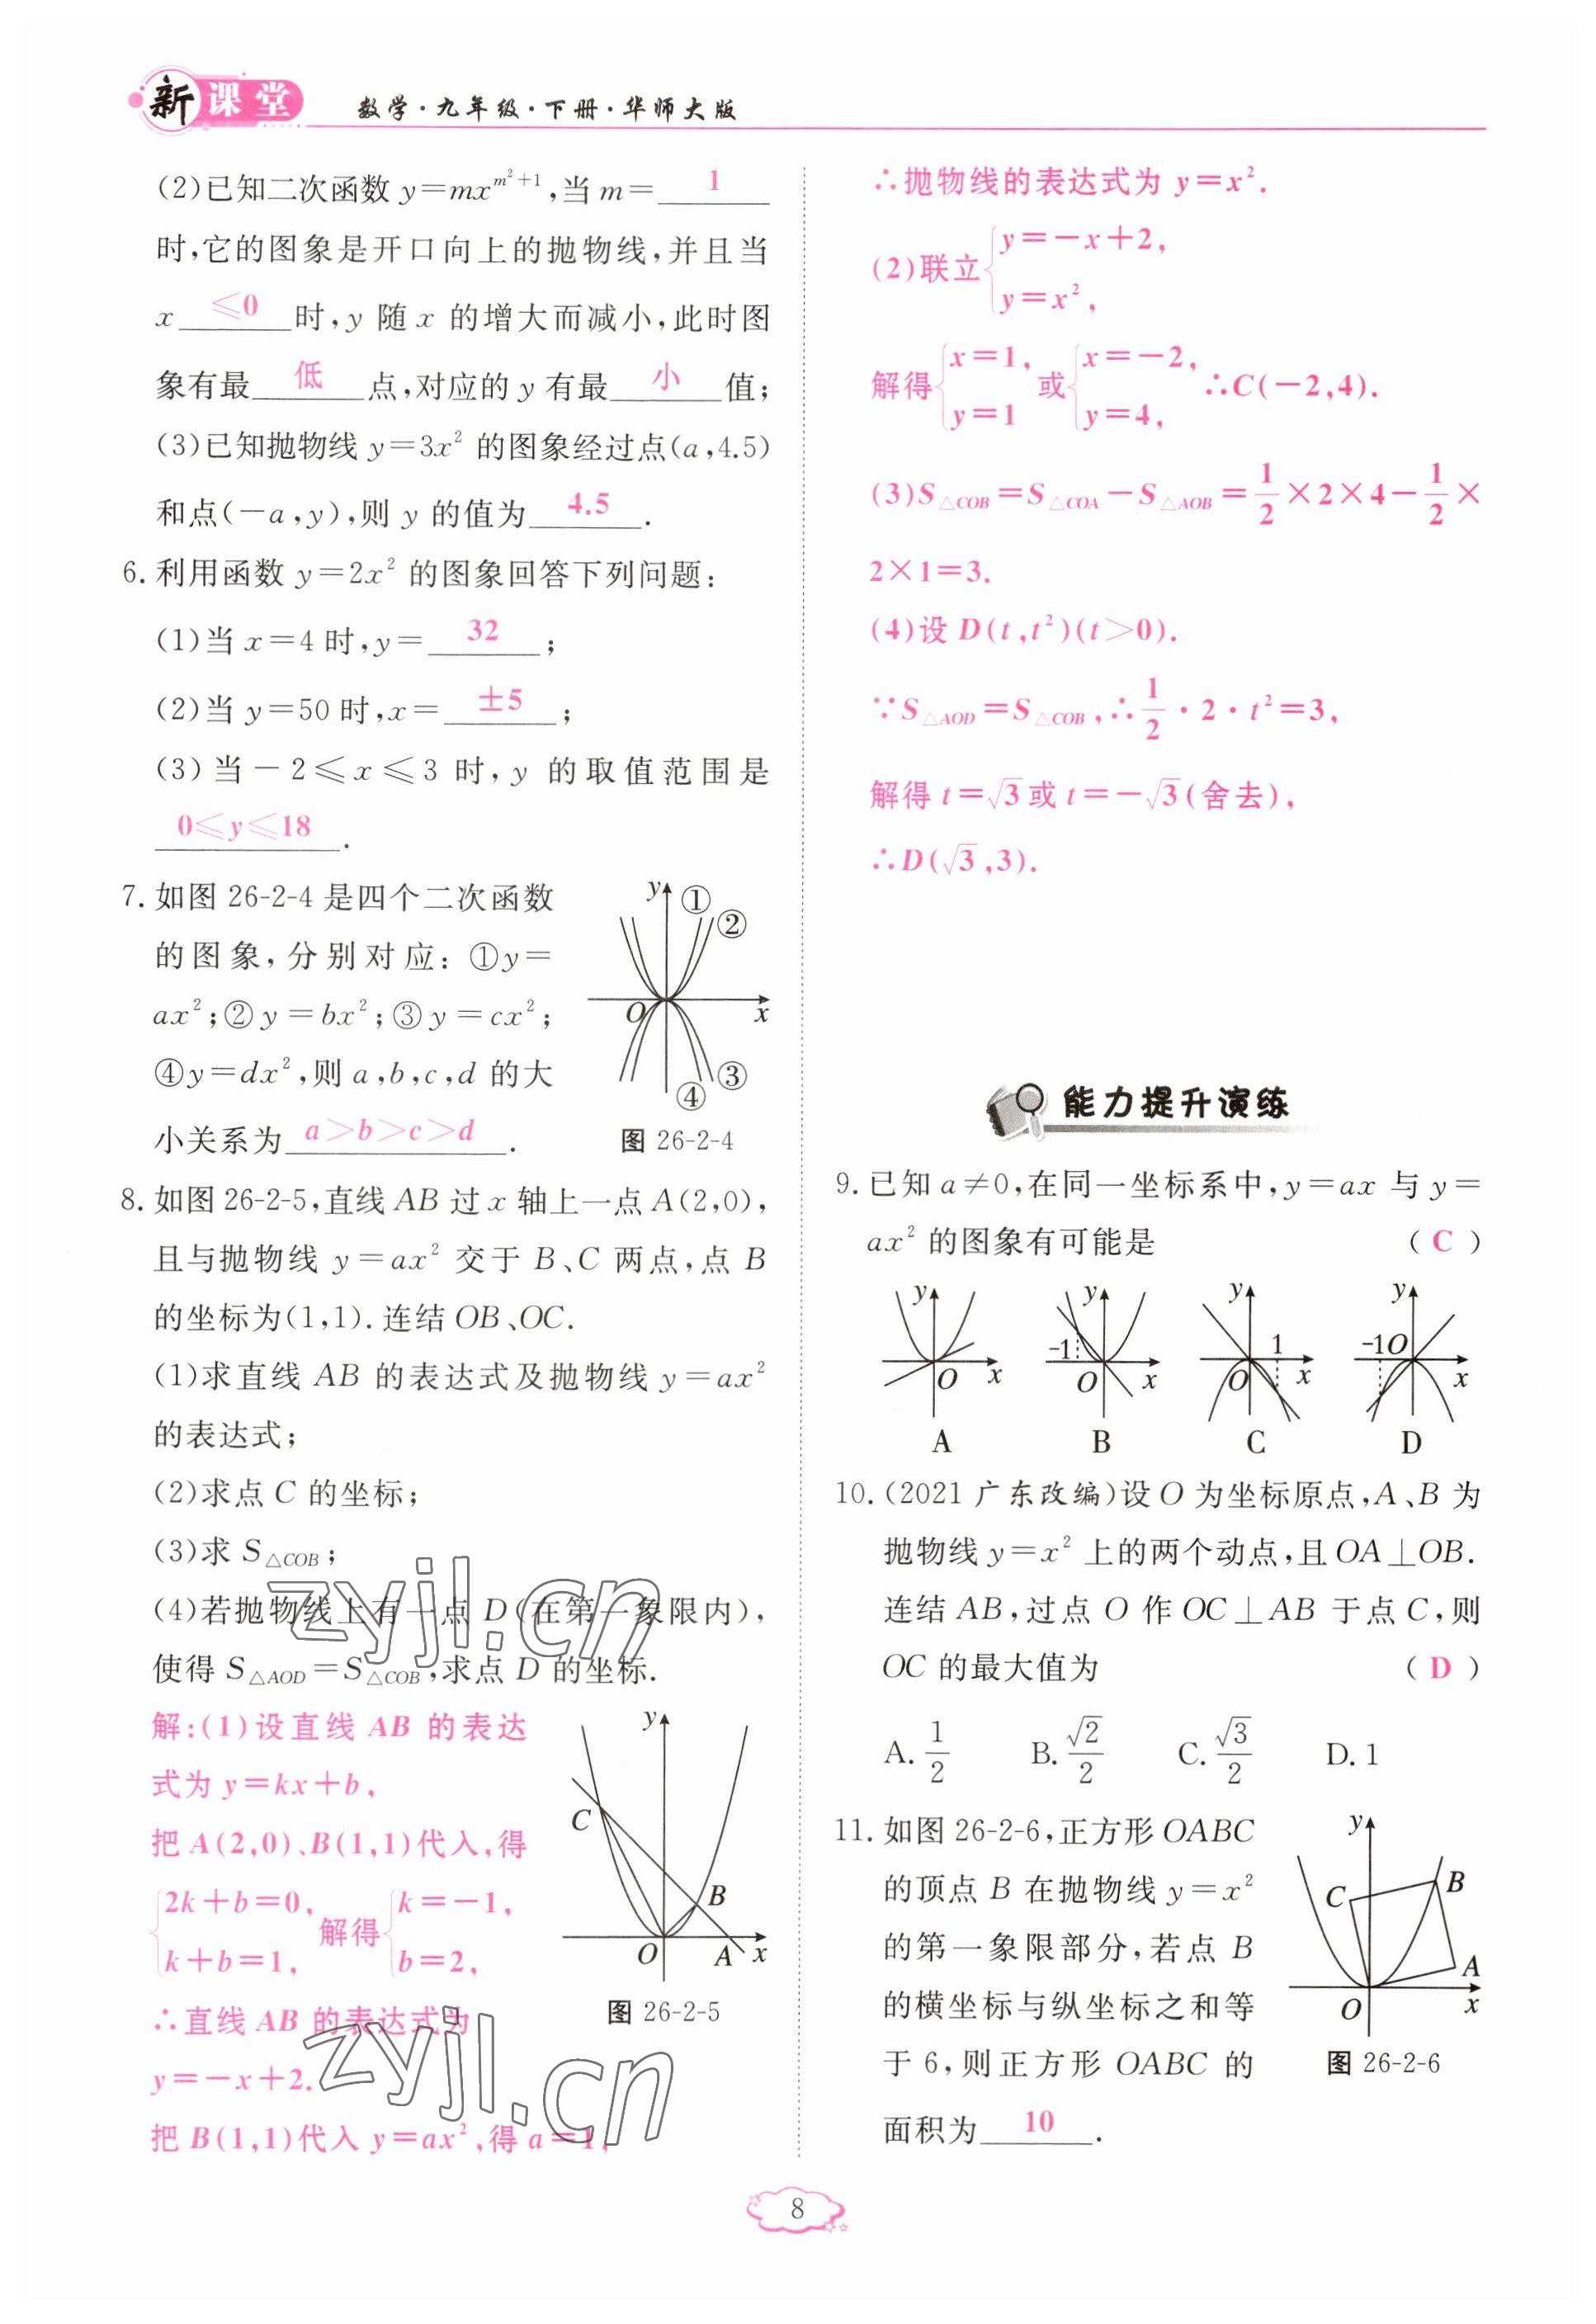 新课堂 数学·九年级·下册·华师大版
(2)已知二次函数 y=mx^{m²+1},当 m= 1
时,它的图象是开口向上的抛物线,并且当
x ≤0 时,y 随 x 的增大而减小,此时图
象有最 低 点,对应的 y 有最 小 值;
(3)已知抛物线 y=3x² 的图象经过点(a,4.5)
和点(-a,y),则 y 的值为 4.5 .
6. 利用函数 y=2x² 的图象回答下列问题:
(1)当 x=4 时,y= 32 ;
(2)当 y=50 时,x= ±5 ;
(3)当-2≤x≤3 时,y 的取值范围是
0≤y≤18 .
7. 如图 26-2-4 是四个二次函数
的图象,分别对应:①y=
ax²;②y=bx²;③y=cx²;
④y=dx²,则 a,b,c,d 的大
小关系为 a>b>c>d .
y ① ②
O x
③ ④
图 26-2-4
8. 如图 26-2-5,直线 AB 过 x 轴上一点 A(2,0),
且与抛物线 y=ax² 交于 B、C 两点,点 B
的坐标为(1,1).连结 OB、OC.
(1)求直线 AB 的表达式及抛物线 y=ax²
的表达式;
(2)求点 C 的坐标;
(3)求 S△COB;
(4)若抛物线上有一点 D(在第一象限内),
使得 S△AOD=S△COB,求点 D 的坐标.
解:(1)设直线 AB 的表达
式为 y=kx+b,
把 A(2,0)、B(1,1)代入,得
{2k+b=0, k+b=1, 解得 {k=-1, b=2,
∴直线 AB 的表达式为
y=-x+2.
把 B(1,1)代入 y=ax²,得 a=1,
y
C
B
O A x
图 26-2-5
zyjl.cn
zyjl.cn
∴抛物线的表达式为 y=x².
(2)联立 {y=-x+2, y=x²,
解得 {x=1, y=1 或 {x=-2, y=4, ∴C(-2,4).
(3)S△COB=S△COA-S△AOB=1/2×2×4-1/2×
2×1=3.
(4)设 D(t,t²)(t>0).
∵S△AOD=S△COB,∴1/2·2·t²=3,
解得 t=√3或 t=-√3(舍去),
∴D(√3,3).
能力提升演练
9. 已知 a≠0,在同一坐标系中,y=ax 与 y=
ax² 的图象有可能是 ( C )
y O x A
y -1 O x B
y 1 O x C
y -1 O x D
10. (2021 广东改编)设 O 为坐标原点,A、B 为
抛物线 y=x² 上的两个动点,且 OA⊥OB.
连结 AB,过点 O 作 OC⊥AB 于点 C,则
OC 的最大值为 ( D )
A. 1/2 B. √2/2 C. √3/2 D. 1
11. 如图 26-2-6,正方形 OABC
的顶点 B 在抛物线 y=x²
的第一象限部分,若点 B
的横坐标与纵坐标之和等
于 6,则正方形 OABC 的
面积为 10 .
y
C B
A
O x
图 26-2-6
8